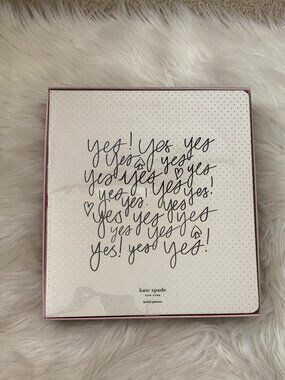 yes! yes yes
yes yes
yes yes yes
yes yes yes!
yes yes yes
yes yes
yes! yes yes!
kate spade
NEW YORK
bridal planner